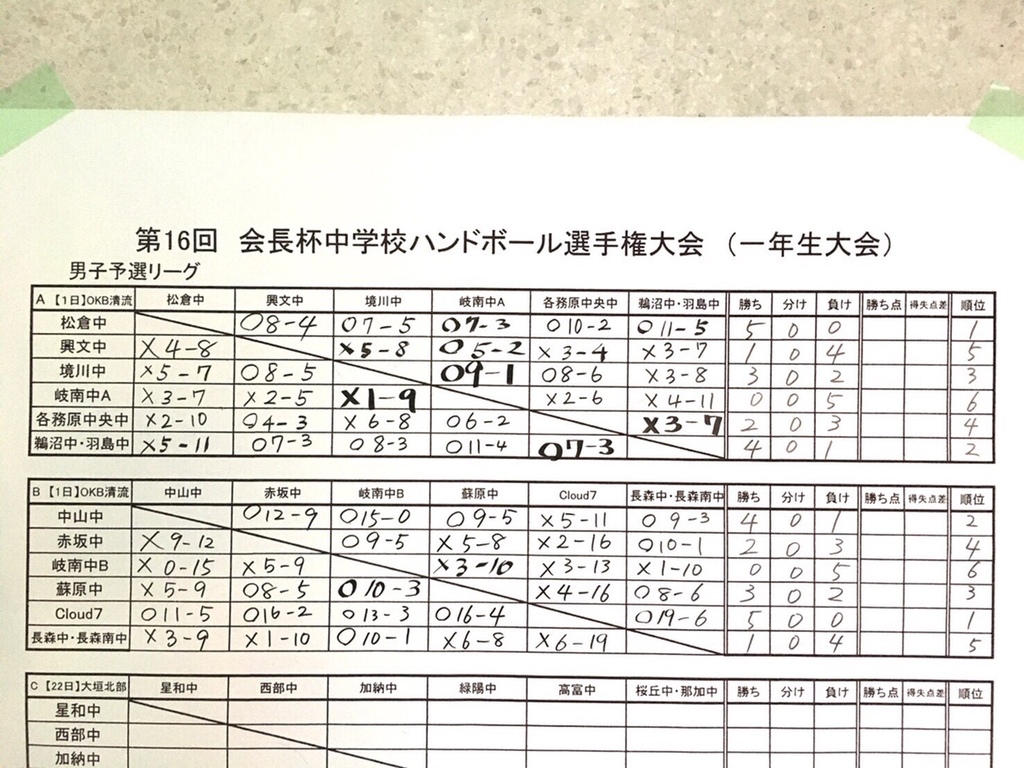 第16回 会長杯中学校ハンドボール選手権大会 (一年生大会)
男子予選リーグ
A 【1日】OKB清流 松倉中 興文中 境川中 岐南中A 各務原中央中 鵜沼中・羽島中 勝ち 分け 負け 勝ち点 得失点差 順位
松倉中 ○8-4 ○7-5 ○7-3 ○10-2 ○11-5 5 0 0 1
興文中 ×4-8 ×5-8 ○5-2 ×3-4 ×3-7 1 0 4 5
境川中 ×5-7 ○8-5 ○9-1 ○8-6 ×3-8 3 0 2 3
岐南中A ×3-7 ×2-5 ×1-9 ×2-6 ×4-11 0 0 5 6
各務原中央中 ×2-10 ○4-3 ×6-8 ○6-2 ×3-7 2 0 3 4
鵜沼中・羽島中 ×5-11 ○7-3 ○8-3 ○11-4 ○7-3 4 0 1 2
B 【1日】OKB清流 中山中 赤坂中 岐南中B 蘇原中 Cloud7 長森中・長森南中 勝ち 分け 負け 勝ち点 得失点差 順位
中山中 ○12-9 ○15-0 ○9-5 ×5-11 ○9-3 4 0 1 2
赤坂中 ×9-12 ○9-5 ×5-8 ×2-16 ○10-1 2 0 3 4
岐南中B ×0-15 ×5-9 ×3-10 ×3-13 ×1-10 0 0 5 6
蘇原中 ×5-9 ○8-5 ○10-3 ×4-16 ○8-6 3 0 2 3
Cloud7 ○11-5 ○16-2 ○13-3 ○16-4 ○19-6 5 0 0 1
長森中・長森南中 ×3-9 ×1-10 ○10-1 ×6-8 ×6-19 1 0 4 5
C 【22日】大垣北部 星和中 西部中 加納中 緑陽中 高富中 桜丘中・那加中 勝ち 分け 負け 勝ち点 得失点差 順位
星和中
西部中
加納中